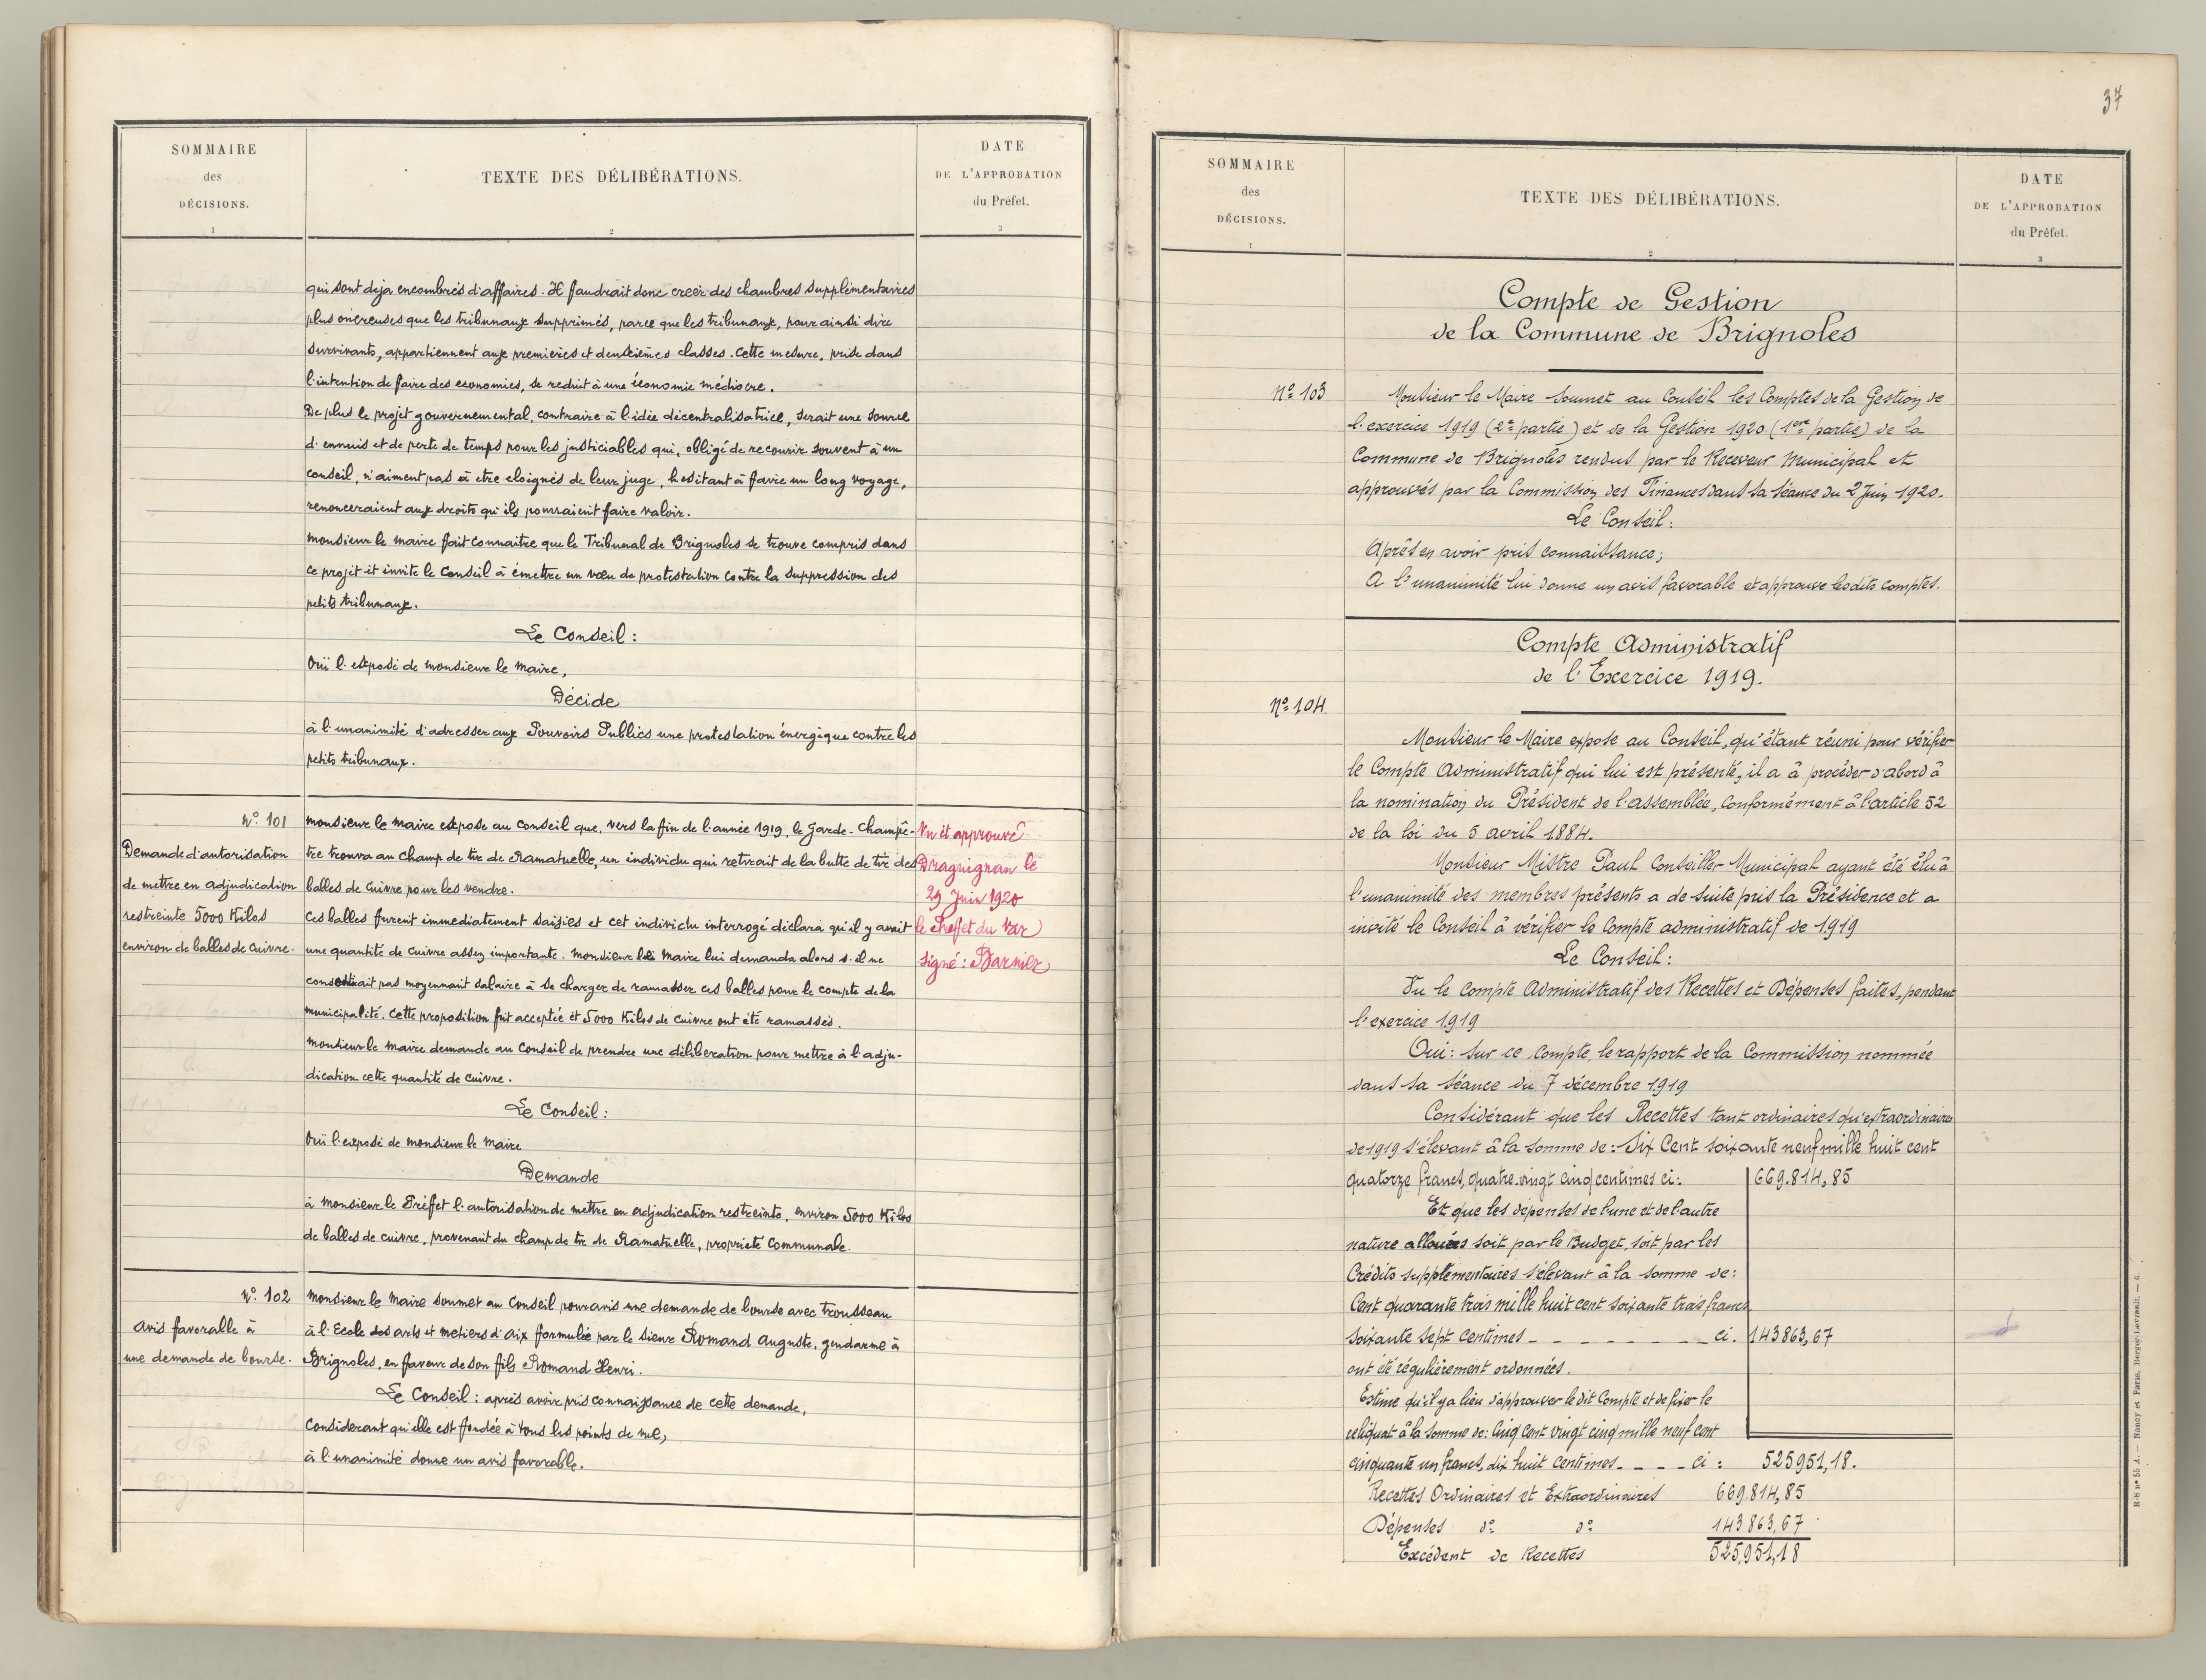 SOMMAIRE
des
DÉCISIONS.
1
TEXTE DES DÉLIBÉRATIONS.
2
DATE
DE L'APPROBATION
du Préfet.
3
qui sont deja encombrés d'affaires. Il faudrait donc creer des chambres supplémentaires
plus onéreuses que les tribunaux supprimés, parce que les tribunaux, pour ainsi dire
survivants, appartiennent aux premieres et deuxièmes classes. Cette mesure, prise dans
l'intention de faire des economies, se reduit à une économie médiocre.
De plus le projet gouvernemental, contraire à l'idée décentralisatrice, serait une source
d'ennuis et de perte de temps pour les justiciables qui, obligé de recourir souvent à un
conseil, n'aiment pas à etre eloignés de leur juge, hesitant à favie un long voyage,
renonceraient aux droits qu'ils pourraient faire valoir.
Monsieur le maire fait connaitre que le Tribunal de Brignoles se trouve compris dans
ce projet et invite le Conseil à émettre un vœu de protestation contre la suppression des
petits tribunaux.
Le Conseil :
Ouï l'exposé de monsieur le maire,
Décide
à l'unanimité d'adresser aux Pouvoirs Publics une protestation énergique contre les
petits tribunaux.
N° 101
Demande d'autorisation
de mettre en adjudication
restreinte 5000 Kilos
environ de balles de cuivre.
Monsieur le maire expose au Conseil que, vers la fin de l'année 1919, le Garde-Champê-
tre trouva au champ de tir de Ramatuelle, un individu qui retirait de la butte de tir des
balles de cuivre pour les vendre.
Ces balles furent immediatement saisies et cet individu interrogé déclara qu'il y avait
une quantité de cuivre assez importante. Monsieur le Maire lui demanda alors s'il ne
consentirait pas moyennant salaire à se charger de ramasser ces balles pour le compte de la
municipalité. Cette proposition fut acceptée et 5000 Kilos de cuivre ont été ramassés.
Monsieur le maire demande au Conseil de prendre une délibération pour mettre à l'adju-
dication cette quantité de cuivre.
Le Conseil :
Ouï l'exposé de monsieur le maire
Demande
à monsieur le Préfet l'autorisation de mettre en adjudication restreinte, environ 5000 Kilos
de balles de cuivre, provenant du champ de tir de Ramatuelle, propriété Communale.
Vu et approuvé
Draguignan le
29 Juin 1920
le Préfet du Var
Signé : Barnier
N° 102
Avis favorable à
une demande de bourse.
Monsieur le Maire soumet au Conseil pour avis une demande de bourse avec trousseau
à l'Ecole des arts et metiers d'Aix formulée par le sieur Romand Auguste, gendarme à
Brignoles, en faveur de son fils Romand Henri.
Le Conseil : après avoir pris connaissance de cette demande,
Considerant qu'elle est fondée à tous les points de vue,
à l'unanimité donne un avis favorable.
37
SOMMAIRE
des
DÉCISIONS.
1
TEXTE DES DÉLIBÉRATIONS.
2
DATE
DE L'APPROBATION
du Préfet.
3
Compte de Gestion
de la Commune de Brignoles
N° 103
Monsieur le Maire soumet au Conseil les Comptes de la Gestion de
l'exercice 1919 (2e partie) et de la Gestion 1920 (1ere partie) de la
Commune de Brignoles rendus par le Receveur Municipal et
approuvés par la Commission des Finances dans sa séance du 2 Juin 1920.
Le Conseil :
Après en avoir pris connaissance ;
A l'unanimité lui donne un avis favorable et approuve lesdits comptes.
Compte Administratif
de l'Exercice 1919.
N° 104
Monsieur le Maire expose au Conseil, qu'étant réuni pour vérifier
le Compte Administratif qui lui est présenté, il a à procéder d'abord à
la nomination du Président de l'assemblée, conformément à l'article 52
de la loi du 5 avril 1884.
Monsieur Mistre Paul Conseiller Municipal ayant été élu à
l'unanimité des membres présents a de suite pris la Présidence et a
invité le Conseil à vérifier le Compte administratif de 1919
Le Conseil :
Vu le Compte Administratif des Recettes et Dépenses faites, pendant
l'exercice 1919
Oui : sur ce Compte, le rapport de la Commission nommée
dans sa séance du 7 décembre 1919
Considérant que les Recettes tant ordinaires qu'extraordinaires
de 1919 s'élevant à la somme de : Six Cent soixante neuf mille huit cent
quatorze francs, quatre-vingt cinq centimes ci : 669.814,85
Et que les dépenses de l'une et de l'autre
nature allouées soit par le Budget, soit par les
Crédits supplémentaires s'élevant à la somme de :
Cent quarante trois mille huit cent soixante trois francs
soixante sept centimes - - - - - - - - ci. 143863,67
ont été régulièrement ordonnées.
Estime qu'il y a lieu d'approuver le dit Compte et de fixer le
reliquat à la somme de : Cinq cent vingt cinq mille neuf cent
cinquante un francs, dix huit centimes - - - - ci : 525951,18.
Recettes Ordinaires et Extraordinaires 669.814,85
Dépenses d° d° 143.863,67
Excédent de Recettes 525,951,18
R-S n° 55 A. — Nancy et Paris, Berger-Levrault. — 6.